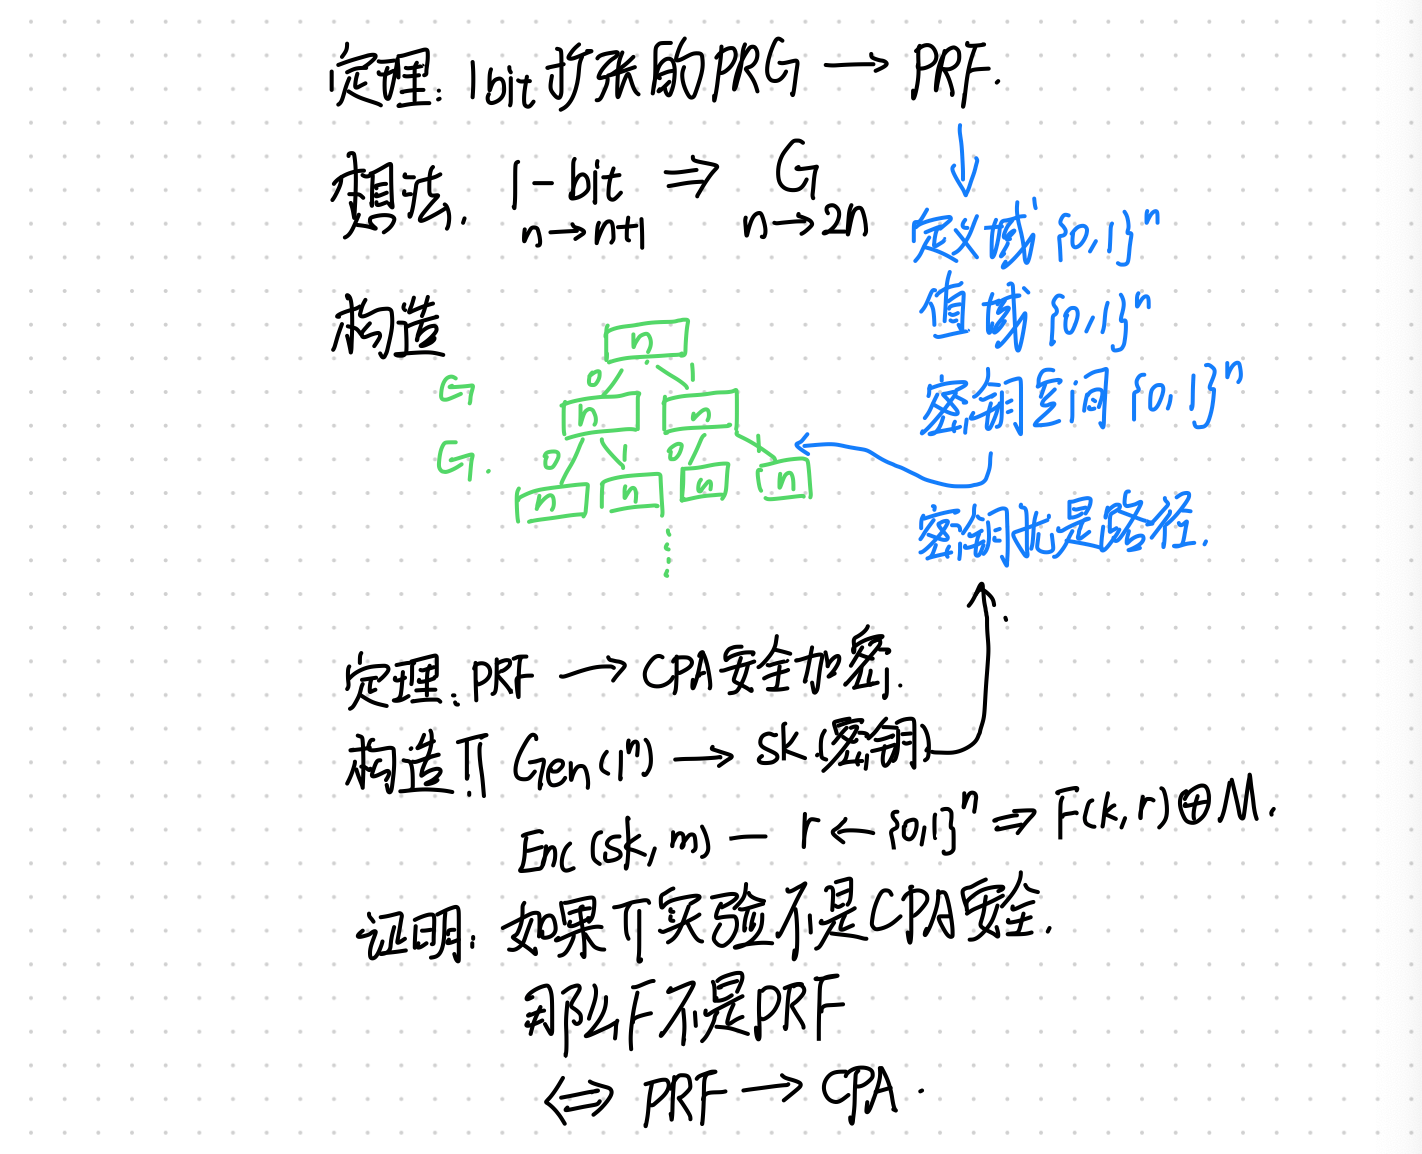 定理: 1bit扩张的PRG → PRF.
想法. 1-bit ⇒ G
n→n+1 n→2n
定义域 {0,1}ⁿ
值域 {0,1}ⁿ
密钥空间 {0,1}ⁿ
密钥就是路径.
构造
n
0 1
G n n
0 1 0 1
G. n n n n
定理: PRF → CPA安全加密.
构造 Π Gen(1ⁿ) → sk.(密钥)
Enc(sk,m) — r ← {0,1}ⁿ ⇒ F(k,r)⊕M.
证明: 如果Π实验不是CPA安全.
那么F不是PRF
⇔ PRF → CPA.